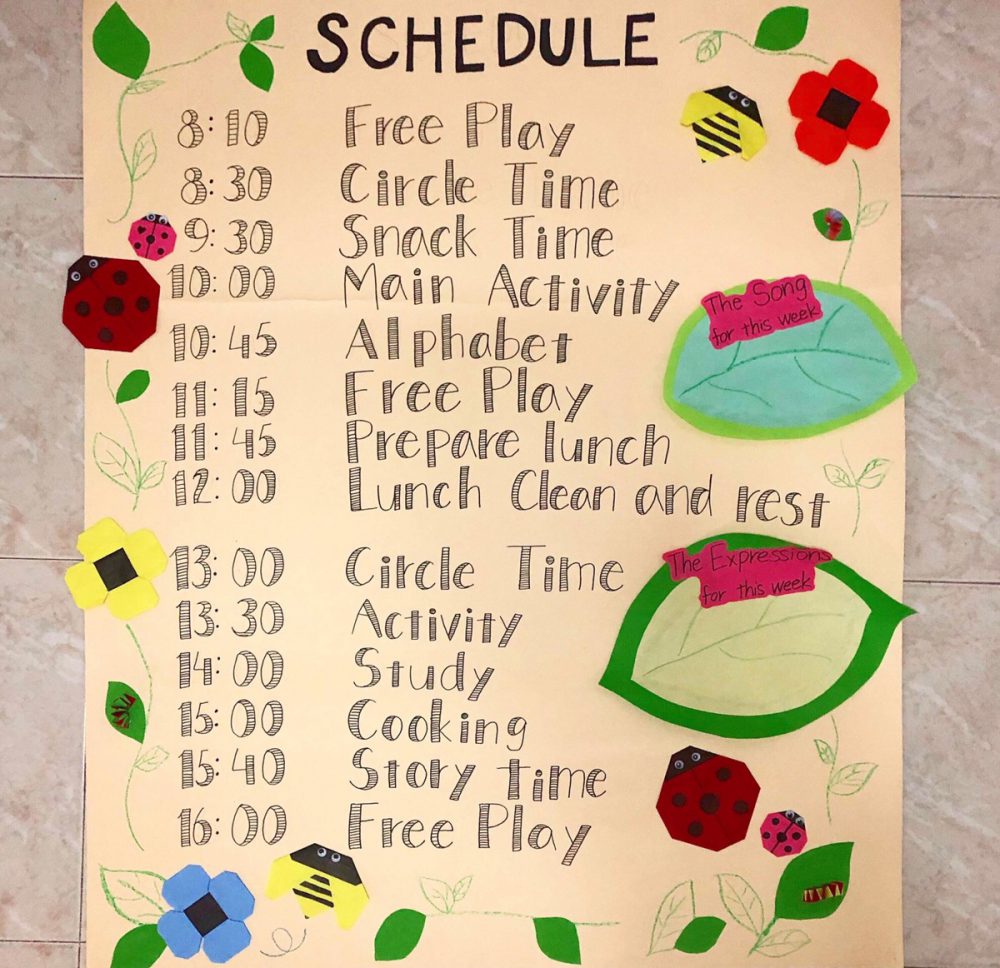 SCHEDULE
8:10 Free Play
8:30 Circle Time
9:30 Snack Time
10:00 Main Activity
The Song
for this week
10:45 Alphabet
11:15 Free Play
11:45 Prepare lunch
12:00 Lunch Clean and rest
13:00 Circle Time
The Expressions
for this week
13:30 Activity
14:00 Study
15:00 Cooking
15:40 Story time
16:00 Free Play